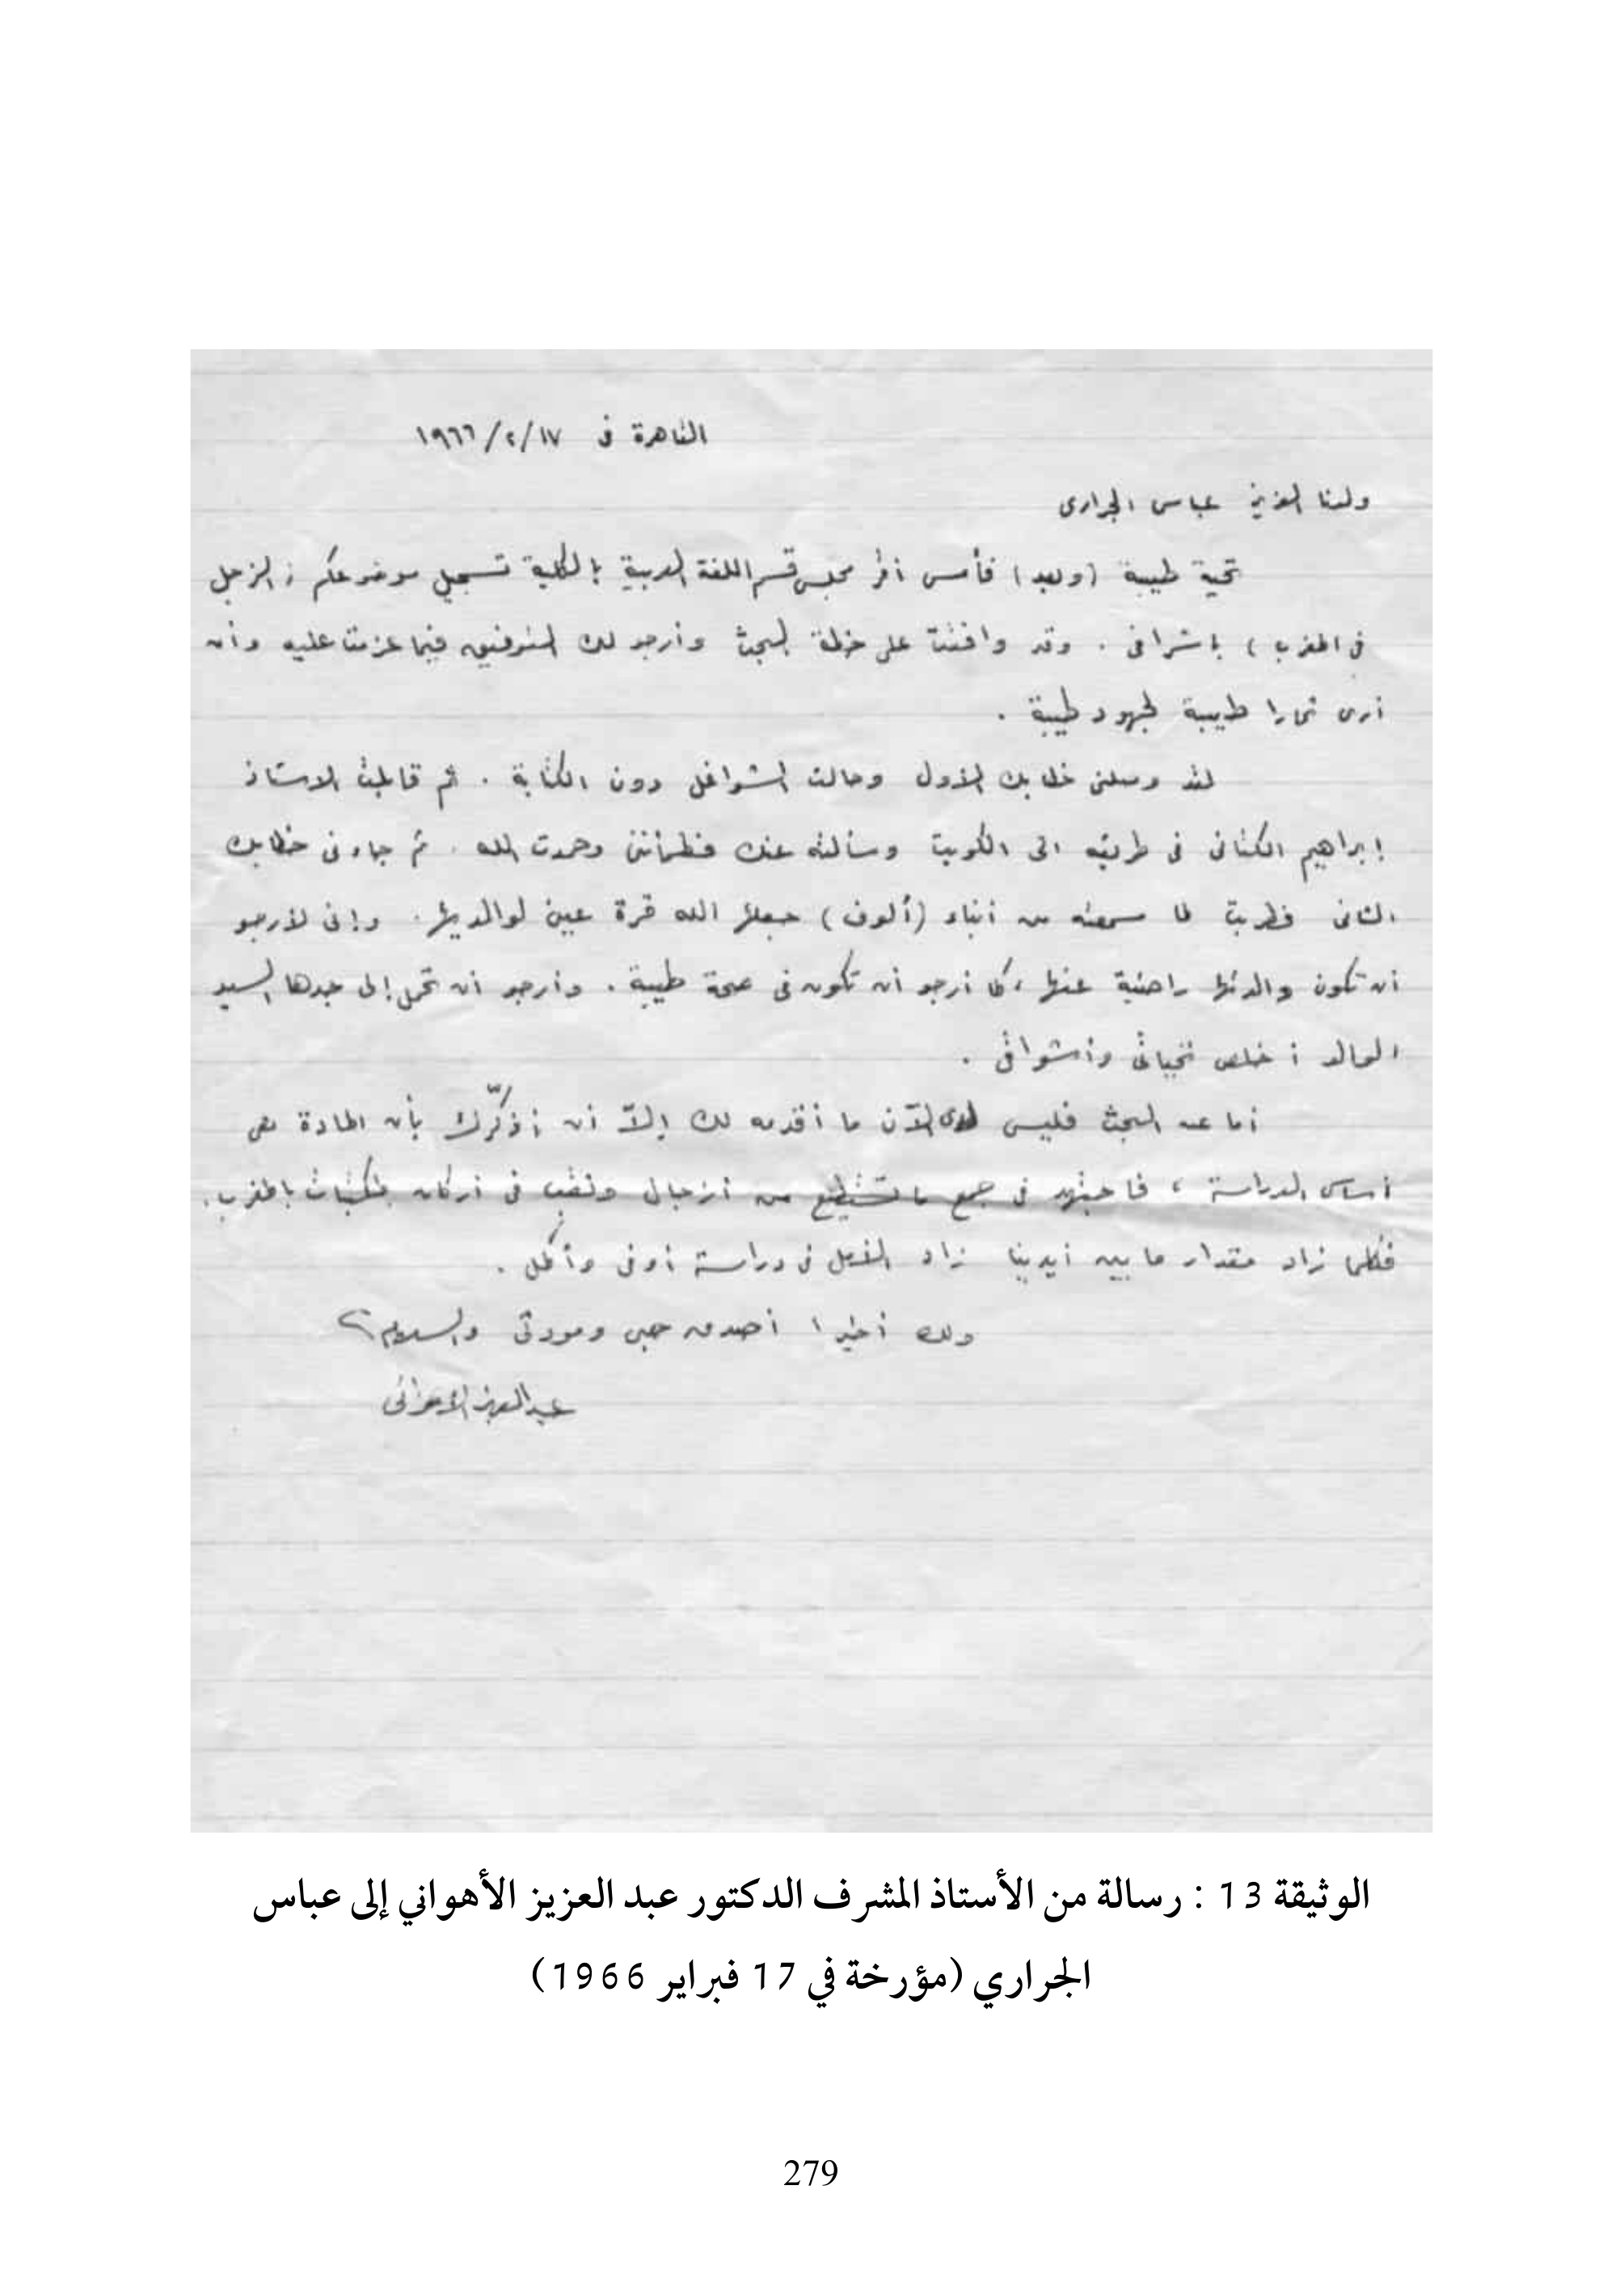 القاهرة فى ١٧/٢/١٩٦٦
ولدنا العزيز عباس الجرارى
تحية طيبة (وبعد) فأمس أقر مجلس قسم اللغة العربية بالكلية تسجيل موضوعكم (الزجل
فى المغرب) باشرافى . وقد وافقت على خطة البحث وأرجو لك التوفيق فيما عزمت عليه وأن
أرى ثمارا طيبة لجهود طيبة .
لقد وصلنى خطابك الأول وحالت الشواغل دون الكتابة . ثم قابلت الاستاذ
إبراهيم الكتانى فى طريقه الى الكويت وسألته عنك فطمأننى وحمدت الله . ثم جاءنى خطابك
الثانى فطربت لما سمعته من أنباء (ألوف) جعلها الله قرة عين لوالديها . وإنى لأرجو
أن تكون والدتها راضية عنها ، كما أرجو أن تكون فى صحة طيبة . وأرجو أن تحمل إلى جدها السيد
الوالد أخلص تحياتى وأشواقى .
أما عن البحث فليس لدى الآن ما أقدمه لك إلاّ أن أذكّرك بأن المادة هى
أساس الدراسة ، فاجتهد فى جمع ما تستطيع من أزجال ونقب فى أركان مكتبات بالمغرب .
فكلما زاد مقدار ما بين أيدينا زاد الأمل فى دراسة أوفى وأكمل .
ولك أخيرا أصدق حبى ومودتى والسلام
عبد العزيز الأهوانى
الوثيقة 13 : رسالة من الأستاذ المشرف الدكتور عبد العزيز الأهواني إلى عباس
الجراري (مؤرخة في 17 فبراير 1966)
279